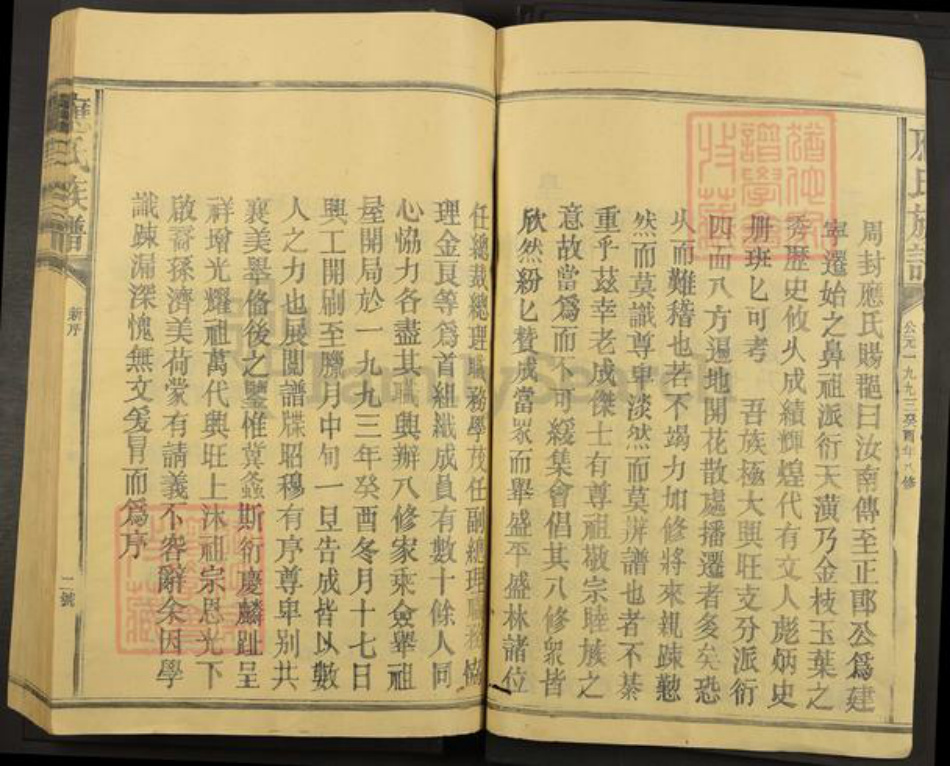 應氏族譜
公元一九九三癸酉年八修
周封應氏賜郡曰汝南傳至正郎公爲建
寧遷始之鼻祖派衍天潢乃金枝玉葉之
秀歷史攸久成績輝煌代有文人彪炳史
册班匕可考 吾族極大興旺支分派衍
四面八方遍地開花散處播遷者多矣恐
久而難稽也若不竭力如修將來親踈懃
然而莫識尊卑淡然而莫辨譜也者不綦
重乎茲幸老成傑士有尊祖敬宗睦族之
意故當爲而不可緩集會倡其八修衆皆
欣然紛匕贊成當衆而舉盛平盛林諸位
任總裁總理職務學茂任副總理職務協
理金良等爲首組織成員有數十餘人同
心恊力各盡其職興辦八修家乘僉舉祖
屋開局於一九九三年癸酉冬月十七日
興工開刷至臘月中旬一旦告成皆以數
人之力也展閱譜牒昭穆有序尊卑别共
襄美舉俻後之鑒惟冀螽斯衍慶麟趾呈
祥增光耀祖萬代興旺上沐祖宗恩光下
啟裔孫濟美荷蒙有請義不容辭余因學
識踈漏深愧無文爰冒而爲序
應氏族譜
新序
二號